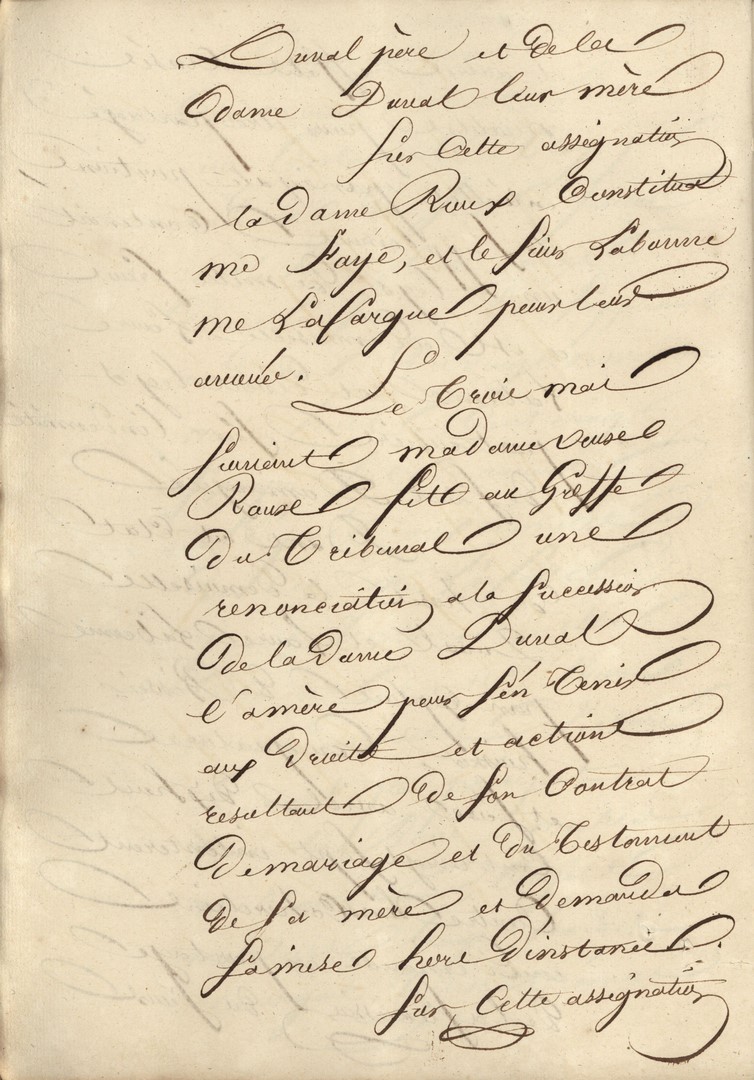 Duval père et de la
dame Duval leur mère
Sur cette assignation
la dame Roux Constitua
me Fayé, et le Sieur Labaume
me Lafargue pour leur
avoué.
Le trois mai
suivant madame veuve
Roux fit au Greffe
du tribunal une
renonciation a la succession
de la dame Duval
sa mère pour s'en tenir
aux droits et action
resultant de son Contrat
de mariage et du testament
de sa mère et demanda
sa mise hors d'instance.
Sur Cette assignation